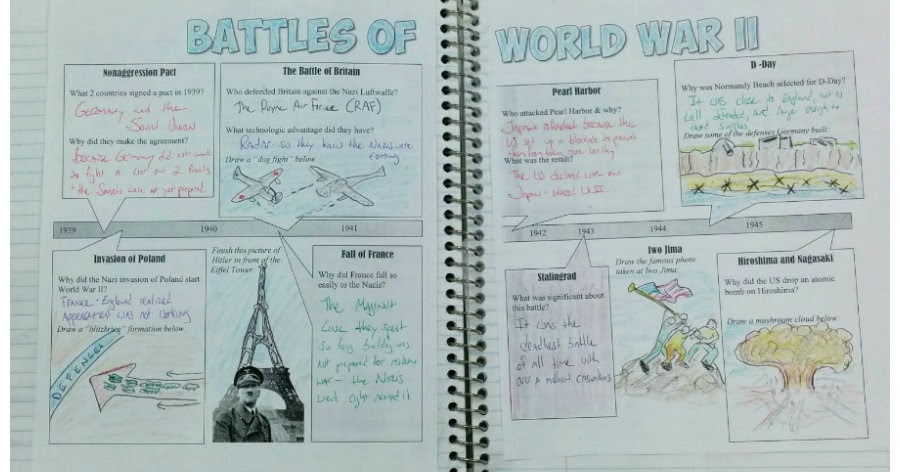 BATTLES OF WORLD WAR II
Nonaggression Pact
What 2 countries signed a pact in 1939?
Germany and the
Soviet Union
Why did they make the agreement?
Because Germany did not want
to fight a war on 2 fronts
+ the Soviets were not yet prepared.
The Battle of Britain
Who defended Britain against the Nazi Luftwaffe?
The Royal Air Force (RAF)
What technologic advantage did they have?
Radar so they knew the Nazis were
coming
Draw a "dog fight" below.
1939
1940
1941
Invasion of Poland
Why did the Nazi invasion of Poland start
World War II?
France + England realized
Appeasement was not working
Draw a "blitzkrieg" formation below.
DEFENSES
Finish this picture of
Hitler in front of the
Eiffel Tower
Fall of France
Why did France fall so
easily to the Nazis?
The Maginot
Line they spent
so long building was
not prepared for modern
war - the Nazis
went right around it
Pearl Harbor
Who attacked Pearl Harbor & why?
Japan attacked because the
US set up a blockade to prevent
them from taking more territory
What was the result?
The US declared war on
Japan + entered WWII.
D -Day
Why was Normandy Beach selected for D-Day?
It was close to England, not as
well defended, and large enough to
land supplies
Draw some of the defenses Germany built:
1942
1943
1944
1945
Stalingrad
What was significant about
this battle?
It was the
deadliest battle
of all time with
over a million casualties
Iwo Jima
Draw the famous photo
taken at Iwo Jima.
Hiroshima and Nagasaki
Why did the US drop an atomic
bomb on Hiroshima?
Draw a mushroom cloud below.